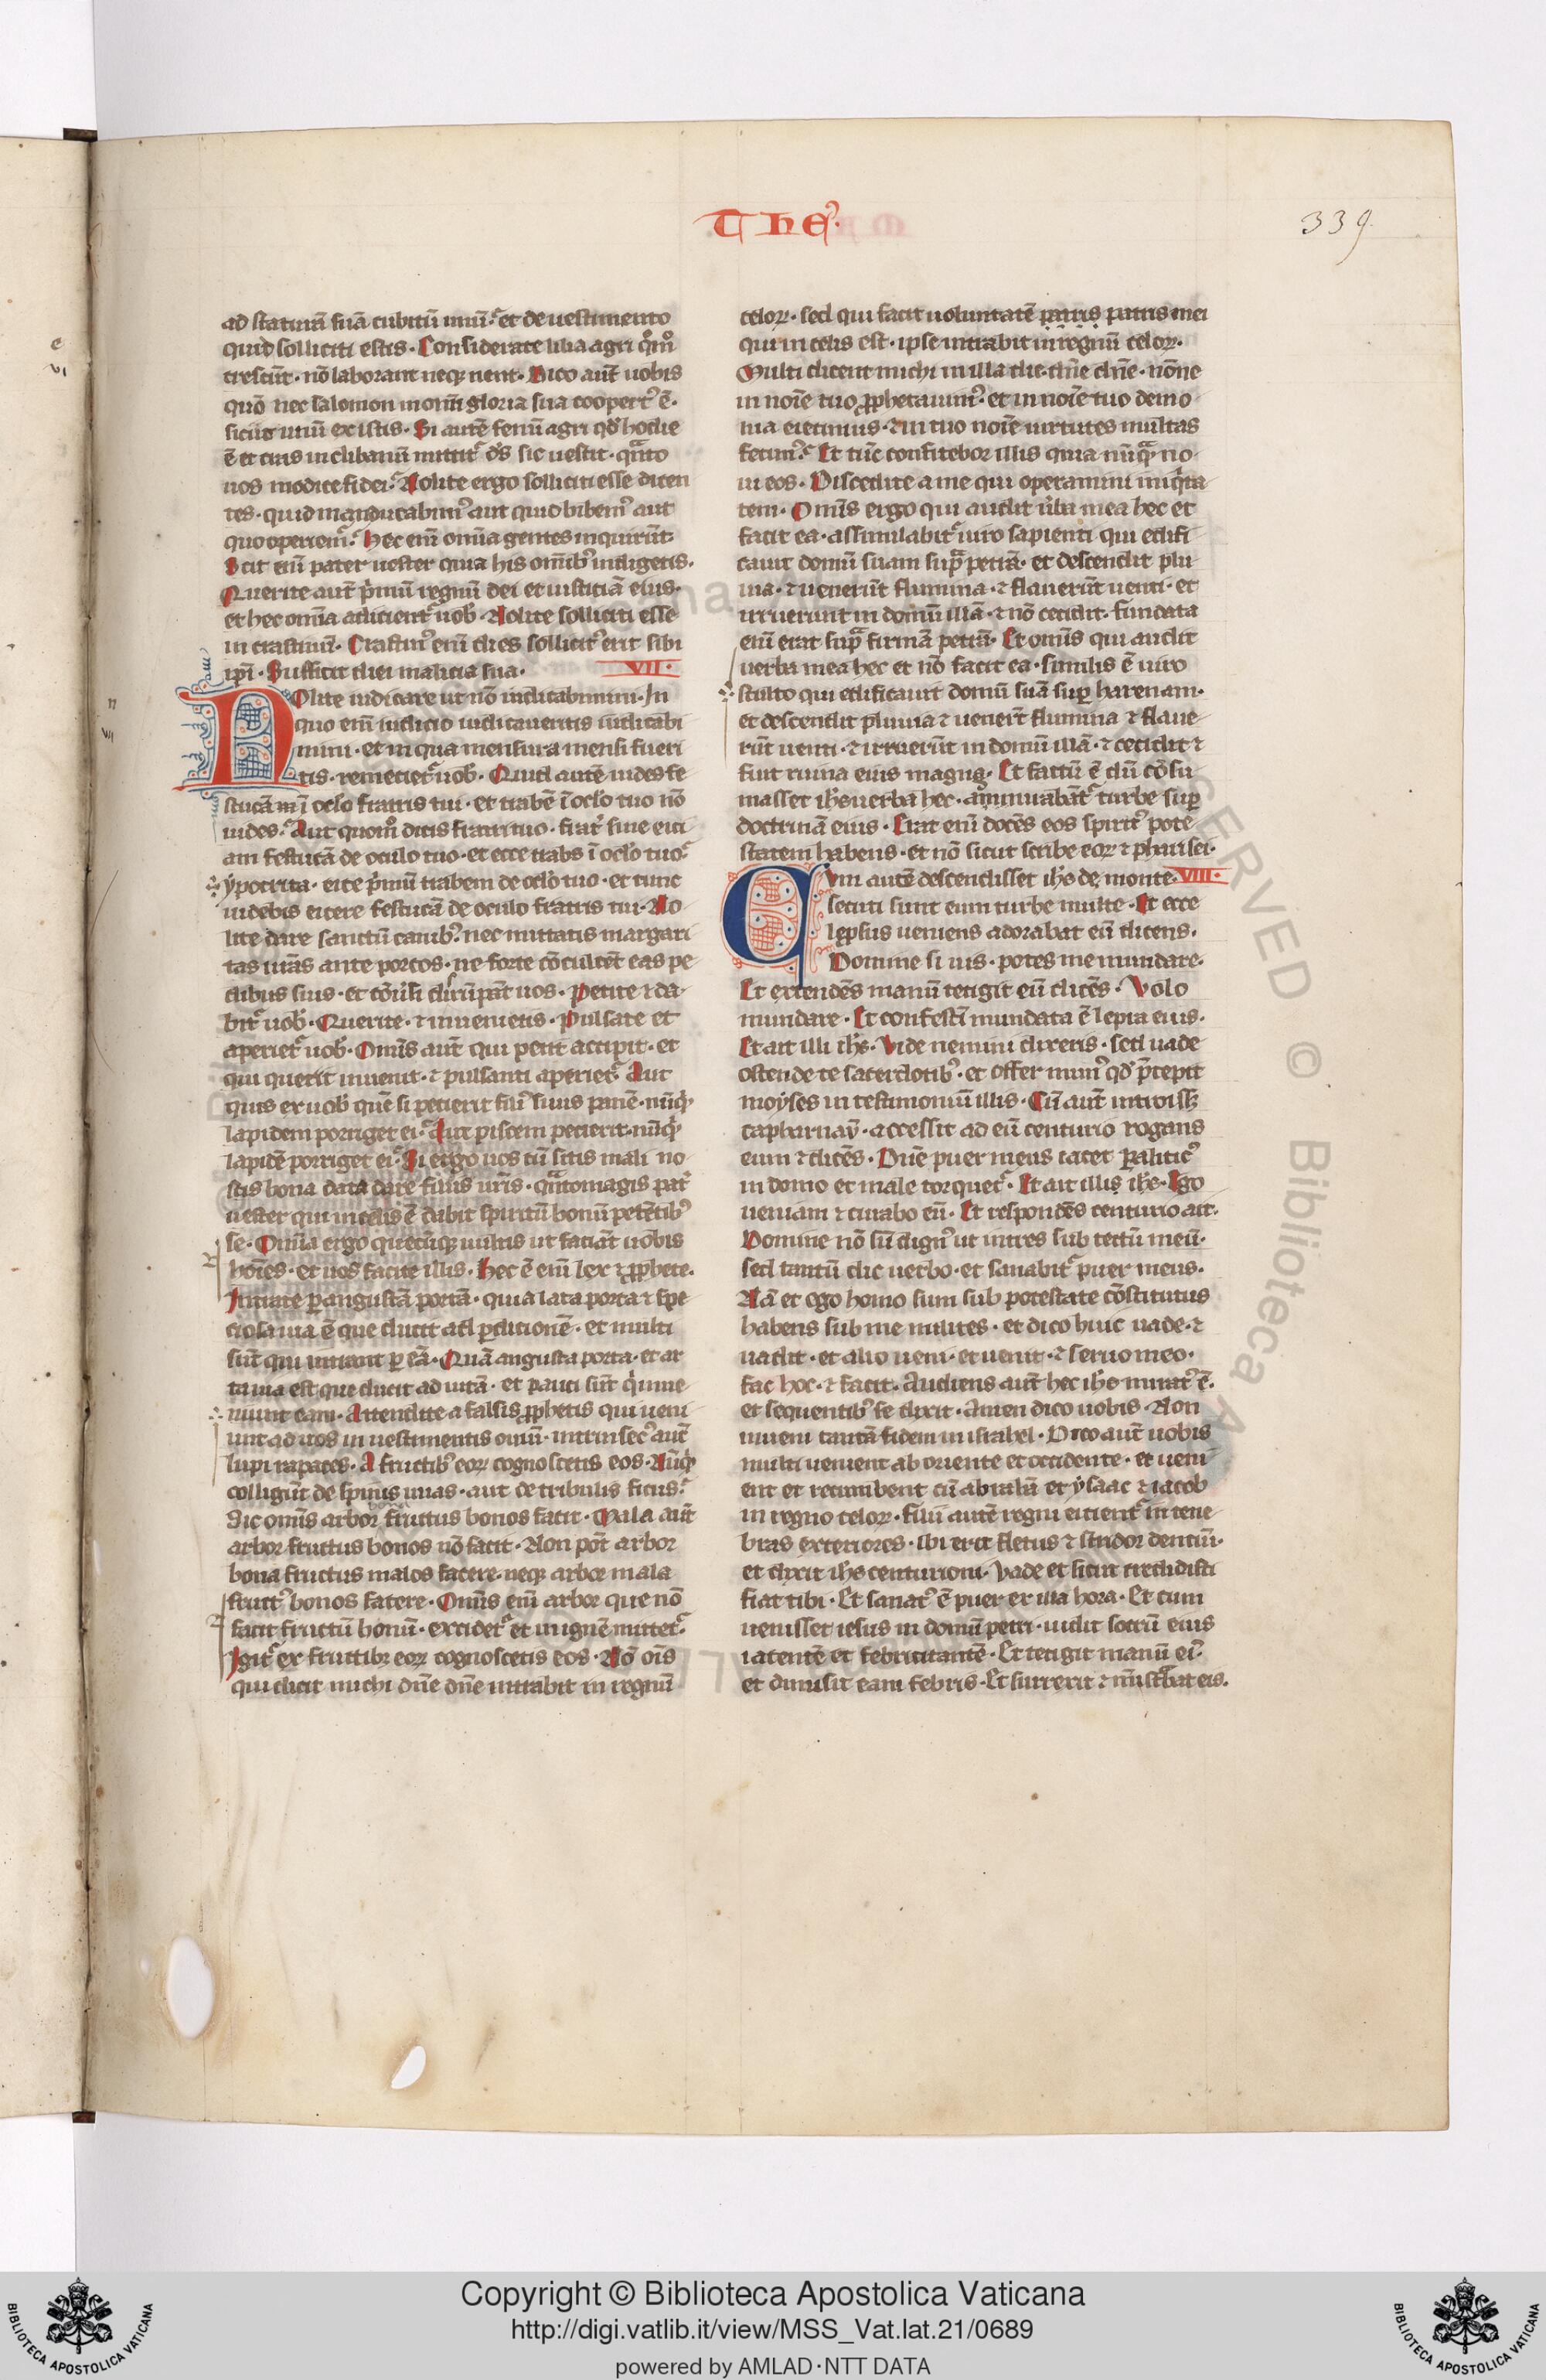 Theꝰ.
339
ad staturā suā cubitū unū. et de uestimento
quid solliciti estis. Considerate lilia agri quōmͦ
crescūt. nō laborant neqꝫ nent. Dico aūt uobis
quō nec salomon in omī gloria sua coopertꝰ ē.
sicut unū ex istis. Si autē fenū agri qd̓ hodie
ē et cras in clibanū mittit᷑ dꝰs sic uestit. qͣnto
uos modice fidei. Nolite ergo solliciti esse dicen
tes. quid manducabimꝰ aut quid bibemꝰ aut
quo operiemꝰ. Hec enī omīa gentes inquirūt.
Scit enī pater uester quia his omībꝰ indigetis.
Querite aūt pͥmū regnū dei et iusticiā eius.
et hec omīa adicient᷑ uob̓. Nolite solliciti esse
in crastinū. Crastinꝰ enī dies sollicitꝰ erit sibi
ipī. Sufficit diei malicia sua.
VII.
Nolite iudicare ut nō iudicabimini. In
quo enī iudicio iudicaueritis iudicabi
mini. et in qua mensura mensi fueri
tis. remetiet᷑ uob̓. Quid autē uides fe
stucā in ī oclo fratris tui. et trabē ī oclo tuo nō
uides. Aut quomͦ dicis fratri tuo. frat̓ sine eici
am festucā de oculo tuo. et ecce trabs ī oclo tuo.
ypocrita. eice pͥmū trabem de oclo tuo. et tunc
uidebis eicere festucā de oculo fratris tui. No
lite dare sanctū canibꝰ. nec mittatis margari
tas ur̄as ante porcos. ne forte cōculcēt eas pe
dibus suis. et cōu̓si dirūpāt uos. Petite ⁊ da
bit᷑ uob̓. Querite. ⁊ inuenietis. Pulsate et
aperiet᷑ uob̓. Omīs aūt qui petit accipit. et
qui querit inuenit. ⁊ pulsanti aperiet᷑. Aut
quis ex uob̓ quē si petierit filiꝰ suus panē. nūqͥd
lapidem porriget ei. Aut piscem petierit. nūqͥd
lapidē porriget ei. Si ergo uos cū sitis mali no
stis bona data dare filiis ur̄is. qͣntomagis pat̓
uester qui in celis ē dabit spiritū bonū petētibꝰ
se. Omīa ergo quecūqꝫ uultis ut faciāt uobis
hoīes. et uos facite illis. Hec ē enī lex ⁊ ꝓphete.
Intrate ꝑ angustā portā. quia lata porta ⁊ spe
ciosa uia ē que ducit ad ꝑditionē. et multi
sūt qui intrant ꝑ eā. Quā angusta porta. et ar
ta uia est que ducit ad uitā. et pauci sūt qͥ inue
niunt eam. Attendite a falsis ꝓphetis qui ueni
unt ad uos in uestimentis ouiū. intrinsecꝰ aūt
lupi rapaces. A fructibꝰ eoꝝ cognoscetis eos. Nūqͥd
colligūt de spinis uuas. aut de tribulis ficus.
bona
Sic omīs arbor fructus bonos facit. Mala aūt
arbor fructus bonos nō facit. Non pōt arbor
bona fructus malos facere. neqꝫ arbor mala
fructꝰ bonos facere. Omīs enī arbor que nō
facit fructū bonū. excidet᷑ et in ignē mittet᷑.
Igit᷑ ex fructibꝫ eoꝝ cognoscetis eos. Nō oīs
qui dicit michi dn̄e dn̄e intrabit in regnū
celoꝝ. sed qui facit uoluntatē patris patris mei
qui in celis est. ipse intrabit in regnū celoꝝ.
Multi dicent michi in illa die. dn̄e dn̄e. nōne
in noīe tuo ꝓphetauimꝰ. et in noīe tuo demo
nia eiecimus. ⁊ in tuo noīe uirtutes multas
fecimꝰ. Et tūc confitebor illis quia nūqͣ no
ui eos. Discedite a me qui operamini iniqͥta
tem. Omīs ergo qui audit u̓ba mea hec et
facit ea. assimilabit᷑ uiro sapienti qui edifi
cauit domū suam supͣ petrā. et descendit plu
uia. ⁊ uenerūt flumina. ⁊ flauerūt uenti. et
irruerunt in domū illā. ⁊ nō cecidit. fundata
enī erat supͣ firmā petrā. Et omīs qui audit
uerba mea hec et nō facit ea. similis ē uiro
stulto qui edificauit domū suā suꝑ harenam.
et descendit pluuia ⁊ uenerūt flumina ⁊ flaue
rūt uenti. ⁊ irruerūt in domū illā. ⁊ cecidit ⁊
fuit ruina eius magna. Et factū ē dū cōsu
masset ih̓s uerba hec. ammirabāt᷑ turbe suꝑ
doctrinā eius. Erat enī docēs eos spiritꝰ pote
statem habens. et nō sicut scribe eoꝝ ⁊ pharisei.
Cum autē descendisset ih̓s de monte. VIII.
secuti sunt eum turbe multe. Et ecce
leprosus ueniens adorabat eū dicens.
Domine si uis. potes me mundare.
Et extendēs manū tetigit eū dicēs. Volo
mundare. Et confestī mundata ē lepra eius.
Et ait illi ih̓s. Vide nemini dixeris. sed uade
ostende te sacerdotibꝰ. et offer munꝰ qd̓ p̄cepit
moyses in testimoniū illis. Cū aūt introissꝫ
capharnaū. accessit ad eū centurio rogans
eum ⁊ dicēs. Dn̄e puer meus iacet ꝑaliticꝰ
in domo et male torquet᷑. Et ait illis ih̓s. Ego
ueniam ⁊ curabo eū. Et respondēs centurio ait.
Domine nō sū dignꝰ ut intres sub tectū meū.
sed tantū dic uerbo. et sanabit᷑ puer meus.
Nā et ego homo sum sub potestate cōstitutus
habens sub me milites. et dico huic uade. ⁊
uadit. et alio ueni. et uenit. ⁊ seruo meo.
fac hoc. ⁊ facit. Audiens aūt hec ih̓s miratꝰ ē.
et sequentibꝰ se dixit. Amen dico uobis. Non
inueni tantā fidem in israhel. Dico aūt uobis
multi uenient ab oriente et occidente. et ueni
ent et recumbent cū abrahā et ysaac ⁊ iacob
in regno celoꝝ. filii autē regni eicient᷑ in tene
bras exteriores. ibi erit fletus ⁊ stridor dentiū.
et dixit ih̓s centurioni. Vade et sicut credidisti
fiat tibi. Et sanatꝰ ē puer ex illa hora. Et cum
uenisset iesus in domū petri. uidit socrū eius
iacentē et febricitantē. Et tetigit manū eiꝰ.
et dimisit eam febris. Et surrexit ⁊ mīstͣbat eis.
Copyright © Biblioteca Apostolica Vaticana
http://digi.vatlib.it/view/MSS_Vat.lat.21/0689
powered by AMLAD·NTT DATA
BIBLIOTECA APOSTOLICA VATICANA
BIBLIOTECA APOSTOLICA VATICANA